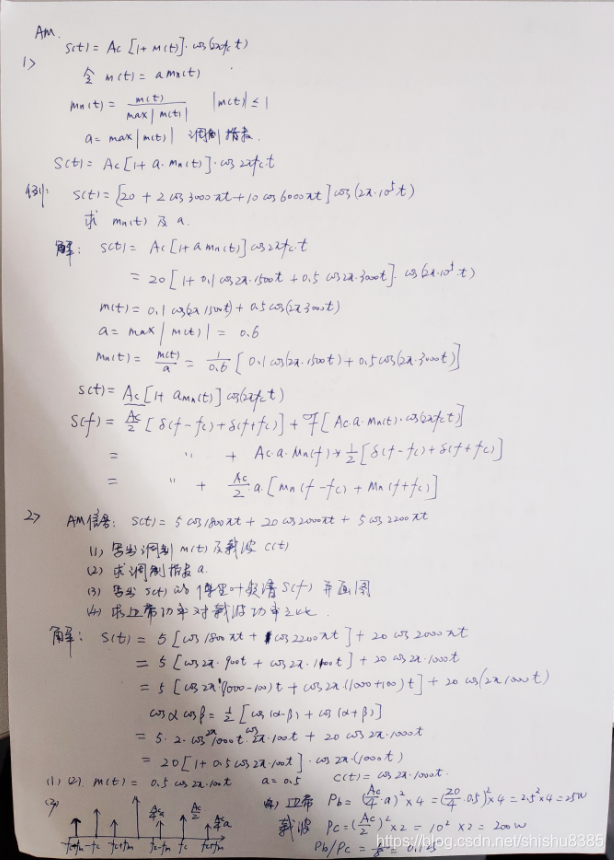 AM.
S(t) = Ac [1+ m(t)]·cos(2πfct)
1>
令 m(t) = a mn(t)
mn(t) = m(t) / max|m(t)|   |m(t)| ≤ 1
a = max|m(t)| 调制指数.
S(t) = Ac[1+ a·mn(t)]·cos2πfc·t
例: S(t) = [20 + 2 cos3000πt + 10 cos6000πt] cos(2π·10⁵t)
求 mn(t) 及 a.
解: S(t) = Ac[1+a mn(t)] cos2πfc·t
= 20 [1+ 0.1 cos2π·1500t + 0.5 cos2π·3000t]·cos(2π·10⁵·t)
m(t) = 0.1 cos(2π·1500t) + 0.5 cos(2π·3000t)
a = max|m(t)| = 0.6
mn(t) = m(t)/a = 1/0.6 [0.1 cos(2π·1500t) + 0.5 cos(2π·3000t)]
S(t) = Ac[1+ amn(t)] cos(2πfct)
S(f) = Ac/2 [δ(f-fc) + δ(f+fc)] + F[Ac·a·mn(t)·cos(2πfct)]
= 〃 + Ac·a·Mn(f) * 1/2 [δ(f-fc) + δ(f+fc)]
= 〃 + Ac/2·a[Mn(f-fc) + Mn(f+fc)]
2> AM信号: S(t) = 5 cos1800πt + 20 cos2000πt + 5 cos2200πt
(1) 写出调制 m(t) 及载波 C(t)
(2) 求调制指数 a.
(3) 写出 S(t) 的傅里叶频谱 S(f) 并画图
(4) 求边带功率对载波功率之比.
解: S(t) = 5 [cos1800πt + cos2200πt] + 20 cos2000πt
= 5 [cos2π·900t + cos2π·1100t] + 20 cos2π·1000t
= 5 [cos2π(1000-100)t + cos2π(1000+100)t] + 20 cos(2π1000t)
cosαcosβ = 1/2 [cos(α-β) + cos(α+β)]
= 5·2·cos2π1000t·cos2π·100t + 20 cos2π·1000t
= 20 [1+ 0.5 cos2π·100t]·cos2π·(1000t)
(1) (2) m(t) = 0.5 cos2π·100t   a=0.5   C(t) = cos2π·1000t.
(3) Ac/4·a Ac/2 Ac/4·a
-fc -fc fc-fm fc fc+fm
(4) 边带 Pb = (Ac/4·a)² × 4 = (20/4·0.5)² × 4 = 2.5² × 4 = 25W
载波 Pc = (Ac/2)² × 2 = 10² × 2 = 200W
Pb/Pc =
https://blog.csdn.net/shishu8385